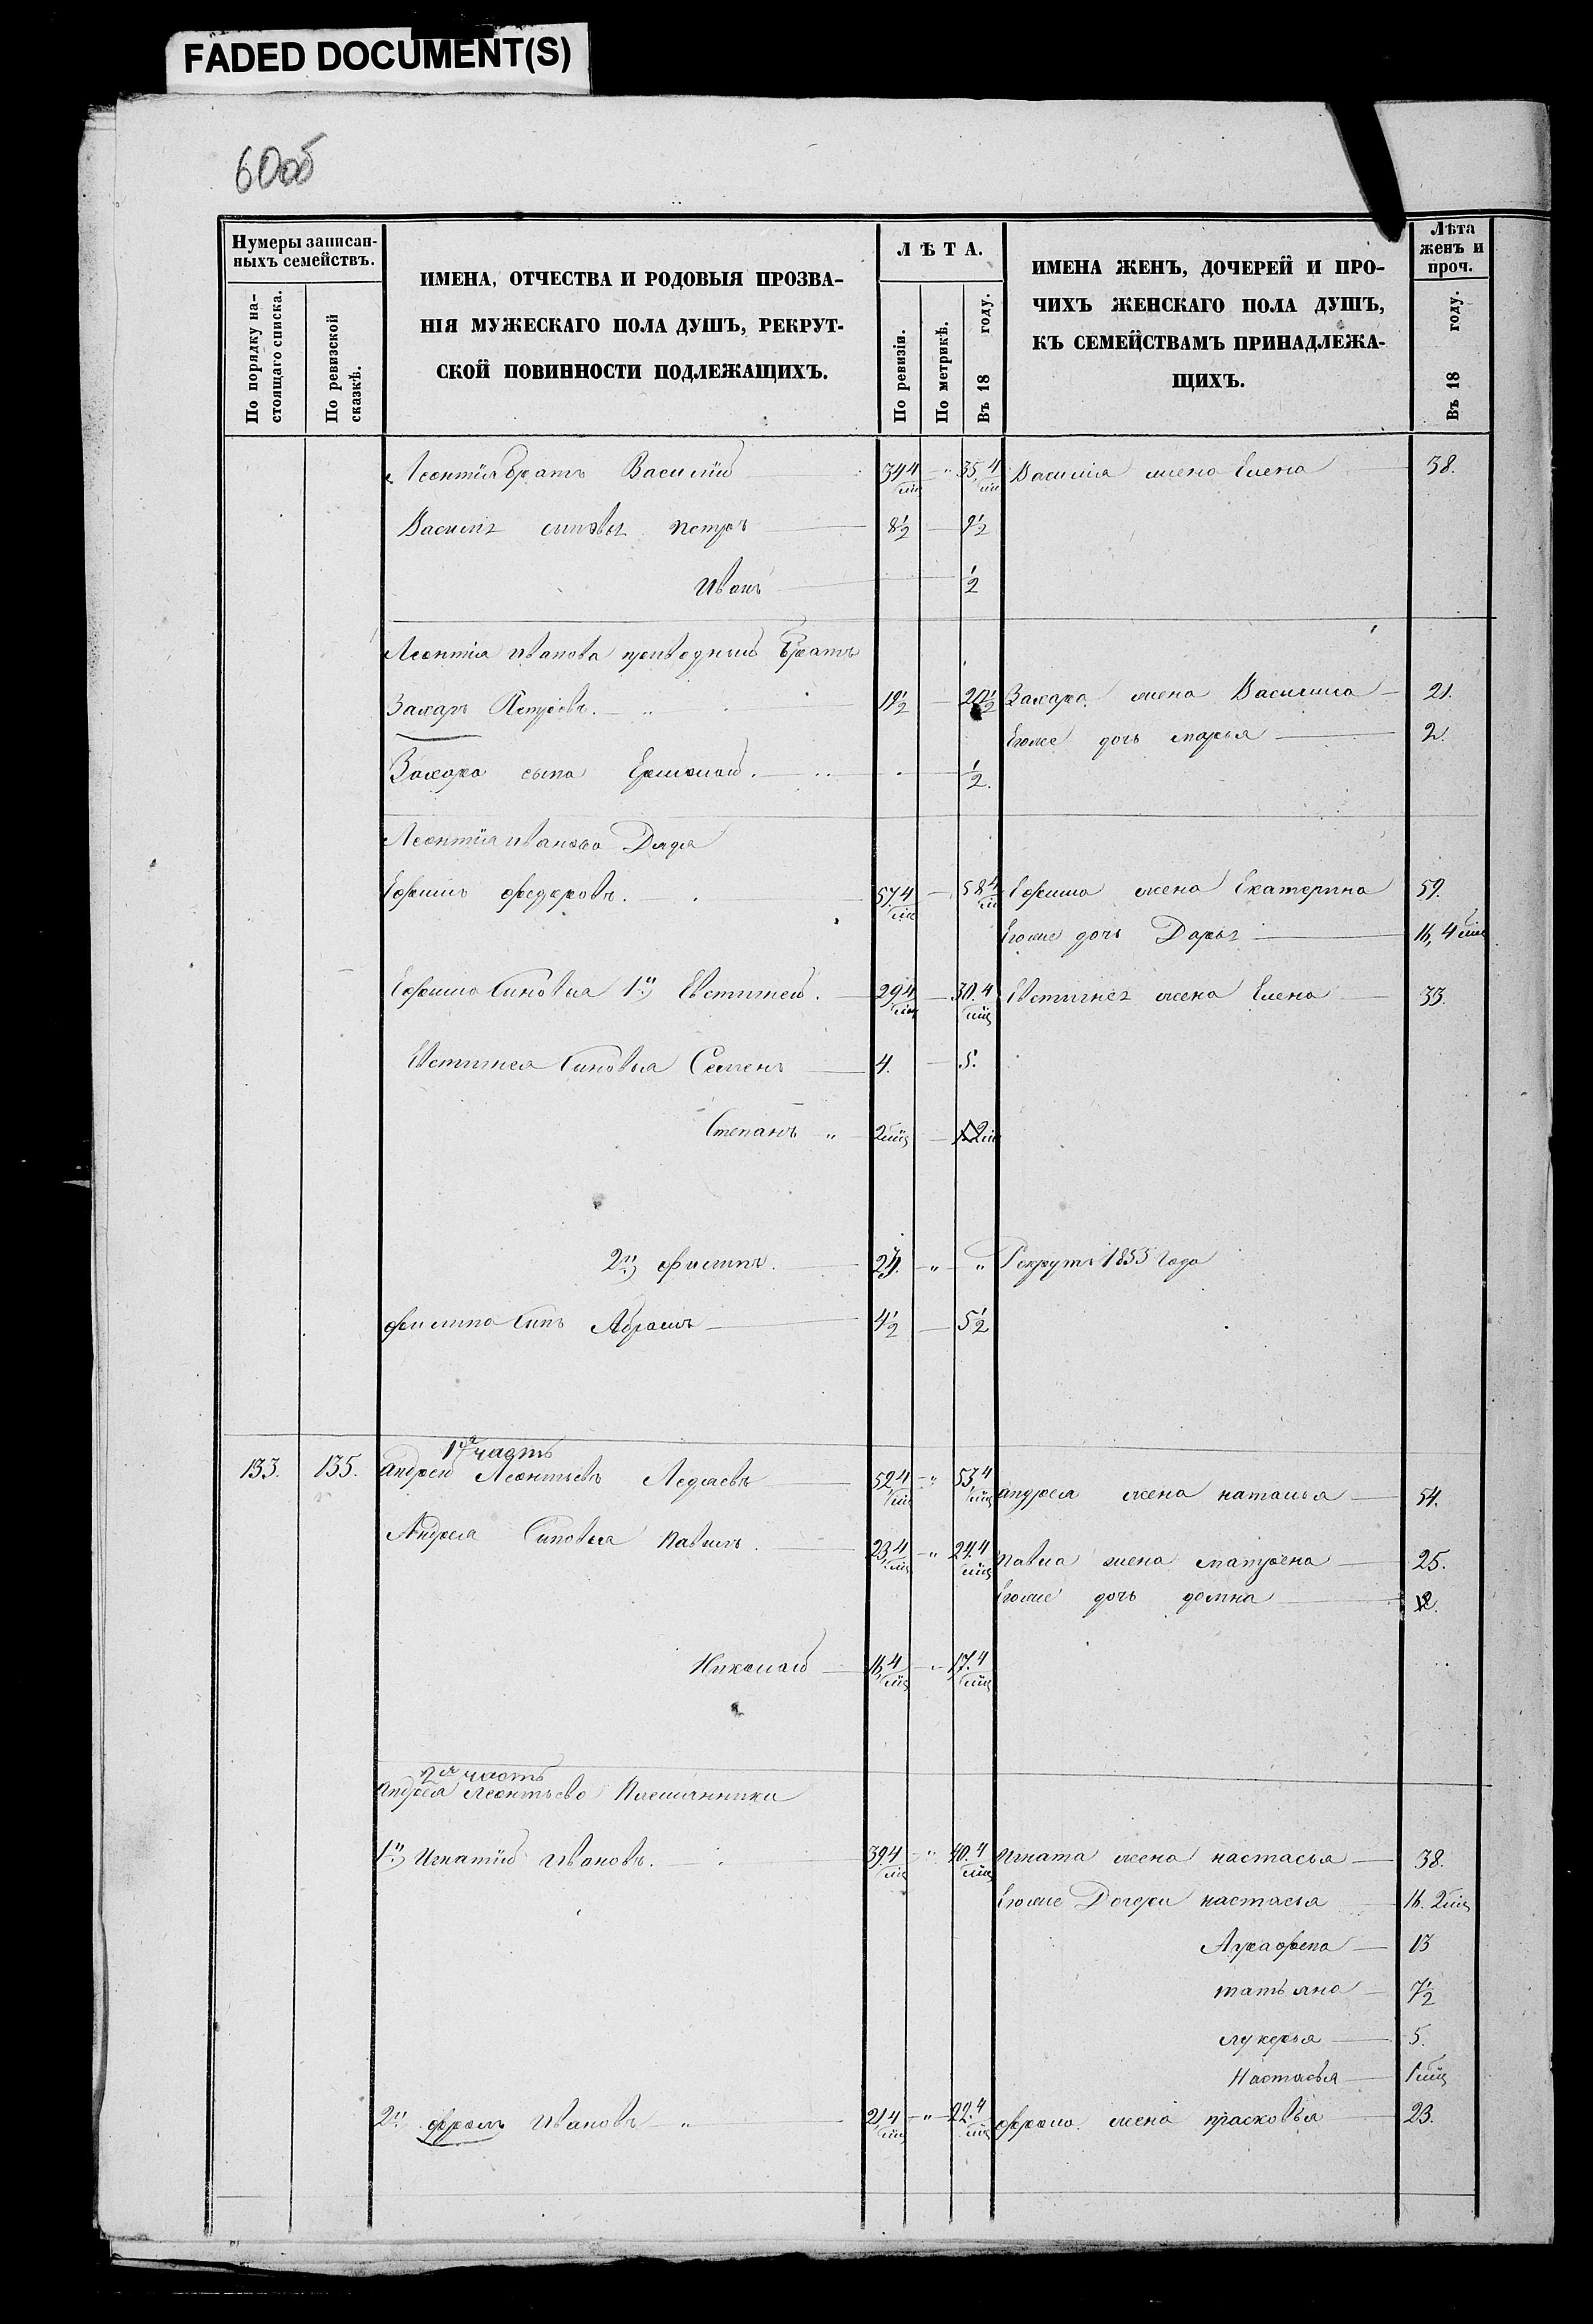 FADED DOCUMENT(S)
60об
Нумеры записан-
ныхъ семействъ.
По порядку на-
стоящаго списка.
По ревизской
сказкѣ.
ИМЕНА, ОТЧЕСТВА И РОДОВЫЯ ПРОЗВА-
НІЯ МУЖЕСКАГО ПОЛА ДУШЪ, РЕКРУТ-
СКОЙ ПОВИННОСТИ ПОДЛЕЖАЩИХЪ.
ЛѢТА.
По ревизіи.
По метрикѣ.
Въ 18 году.
ИМЕНА ЖЕНЪ, ДОЧЕРЕЙ И ПРО-
ЧИХЪ ЖЕНСКАГО ПОЛА ДУШЪ,
КЪ СЕМЕЙСТВАМЪ ПРИНАДЛЕЖА-
ЩИХЪ.
Лѣта
женъ и
проч.
Въ 18 году.
Леонтія братъ Василій 34 4/мц " 35,4/мц Василія жена Елена 38.
Василія сыновья Петръ 8½ 9½
Иванъ ½
Леонтія Иванова братъ
Захаръ Петровъ. 19½ 20½ Захара жена Василиса 21.
Егоже дочь марья 2.
Захара сына Ермолай. ½.
Леонтія Иванова Дядя
Ефимъ федоровъ. 57.4/мц 58 4/мц Ефима жена Екатерина 59.
Егоже дочь Дарья 16, 4 мц
Ефима Сыновья 1й) Евстигней. 29 4/мц 30.4/мц Евстигнея жена Елена 33.
Евстигнея Сыновья Семенъ 4. 5.
Степанъ " 2 мц
2й) филипъ. " " Рекрутъ 1855 года
филипа Сынъ Абрамъ 4½ 5½
1я часть
133. 135. Андрей Леонтьевъ 52,4/мц " 53,4/мц андрея жена наталья 54.
Андрея Сыновья Павилъ. 23,4/мц " 24.4/мц Павла жена матрена 25.
Егоже дочь домна 2.
Николай 16,4/мц " 17.4/мц
2я часть
Андрея Леонтьева Племянники
1й) Игнатій Ивановъ. 39.4/мц " 40.4/мц Игната жена настасья 38.
Егоже Дочери настасья 16. 2мц
Аграфена 13
татьяна 7½
лукерья 5.
Настасья 1мц
2й фролъ Ивановъ " 21,4/мц " 22.4/мц фрола жена прасковья 23.